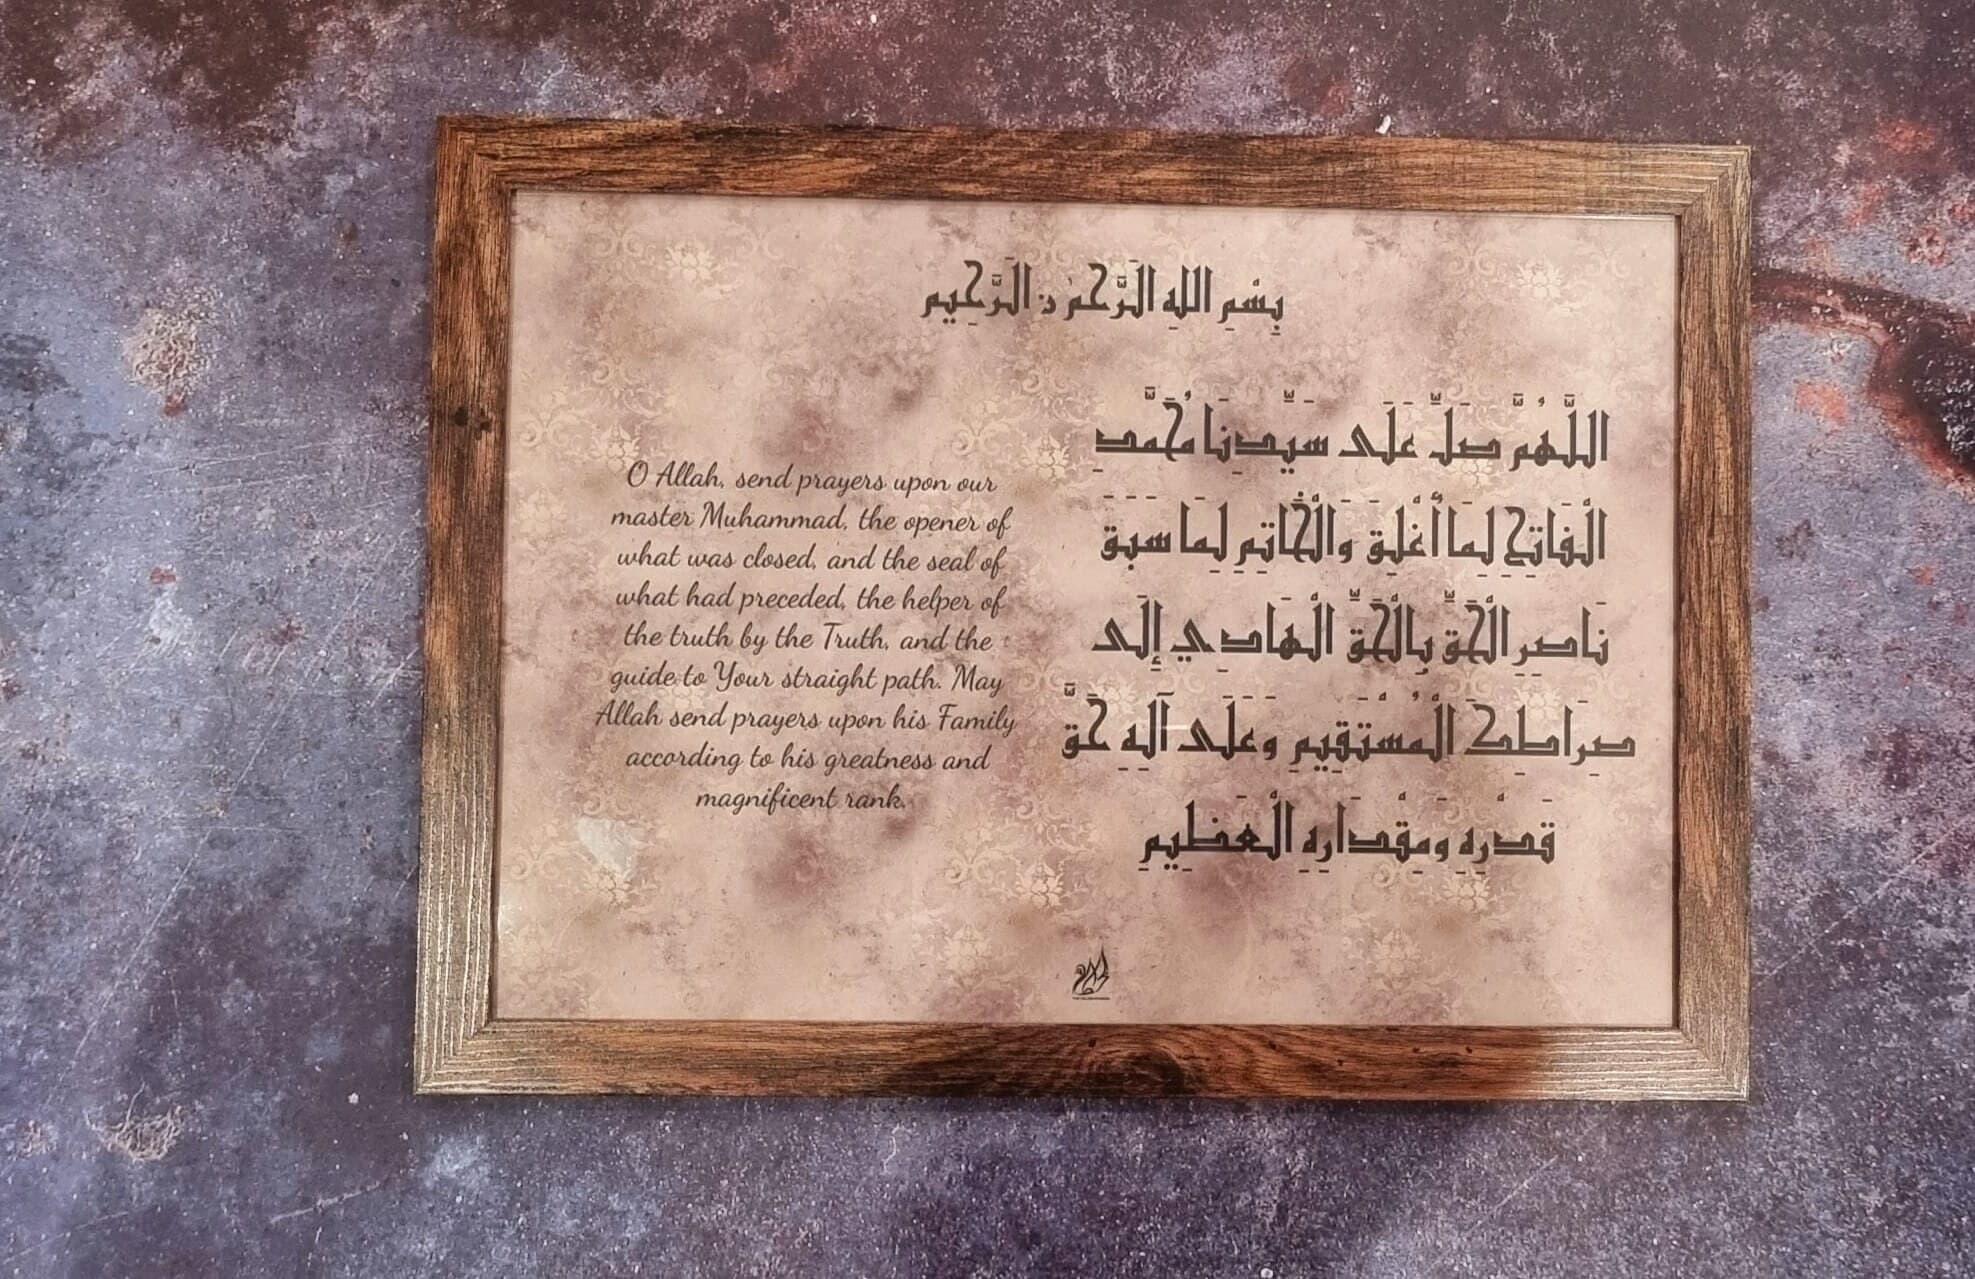 بِسْمِ اللهِ الرَّحْمٰنِ الرَّحِيم
اللَّهُمَّ صَلِّ عَلَى سَيِّدِنَا مُحَمَّدٍ
الْفَاتِحِ لِمَا أُغْلِقَ وَالْخَاتِمِ لِمَا سَبَقَ
نَاصِرِ الْحَقِّ بِالْحَقِّ الْهَادِي إِلَى
صِرَاطِكَ الْمُسْتَقِيمِ وَعَلَى آلِهِ حَقَّ
قَدْرِهِ وَمِقْدَارِهِ الْعَظِيمِ
O Allah, send prayers upon our
master Muhammad, the opener of
what was closed, and the seal of
what had preceded, the helper of
the truth by the Truth, and the
guide to Your straight path. May
Allah send prayers upon his Family
according to his greatness and
magnificent rank.